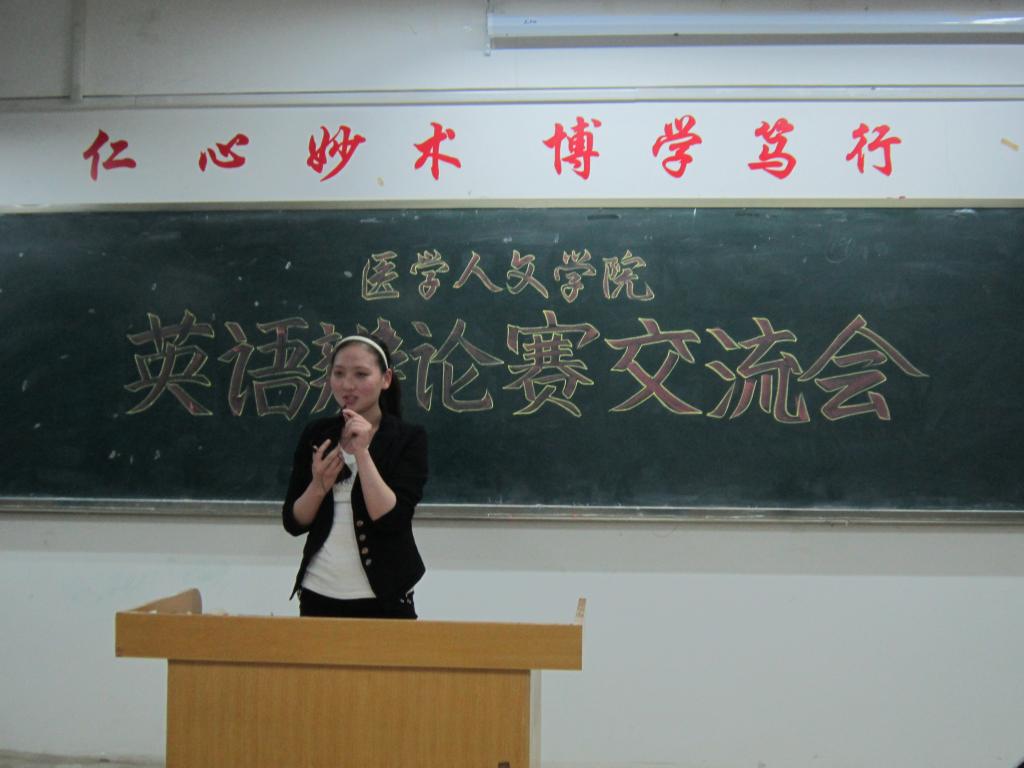 仁心妙术 博学笃行
医学人文学院
英语辩论赛交流会